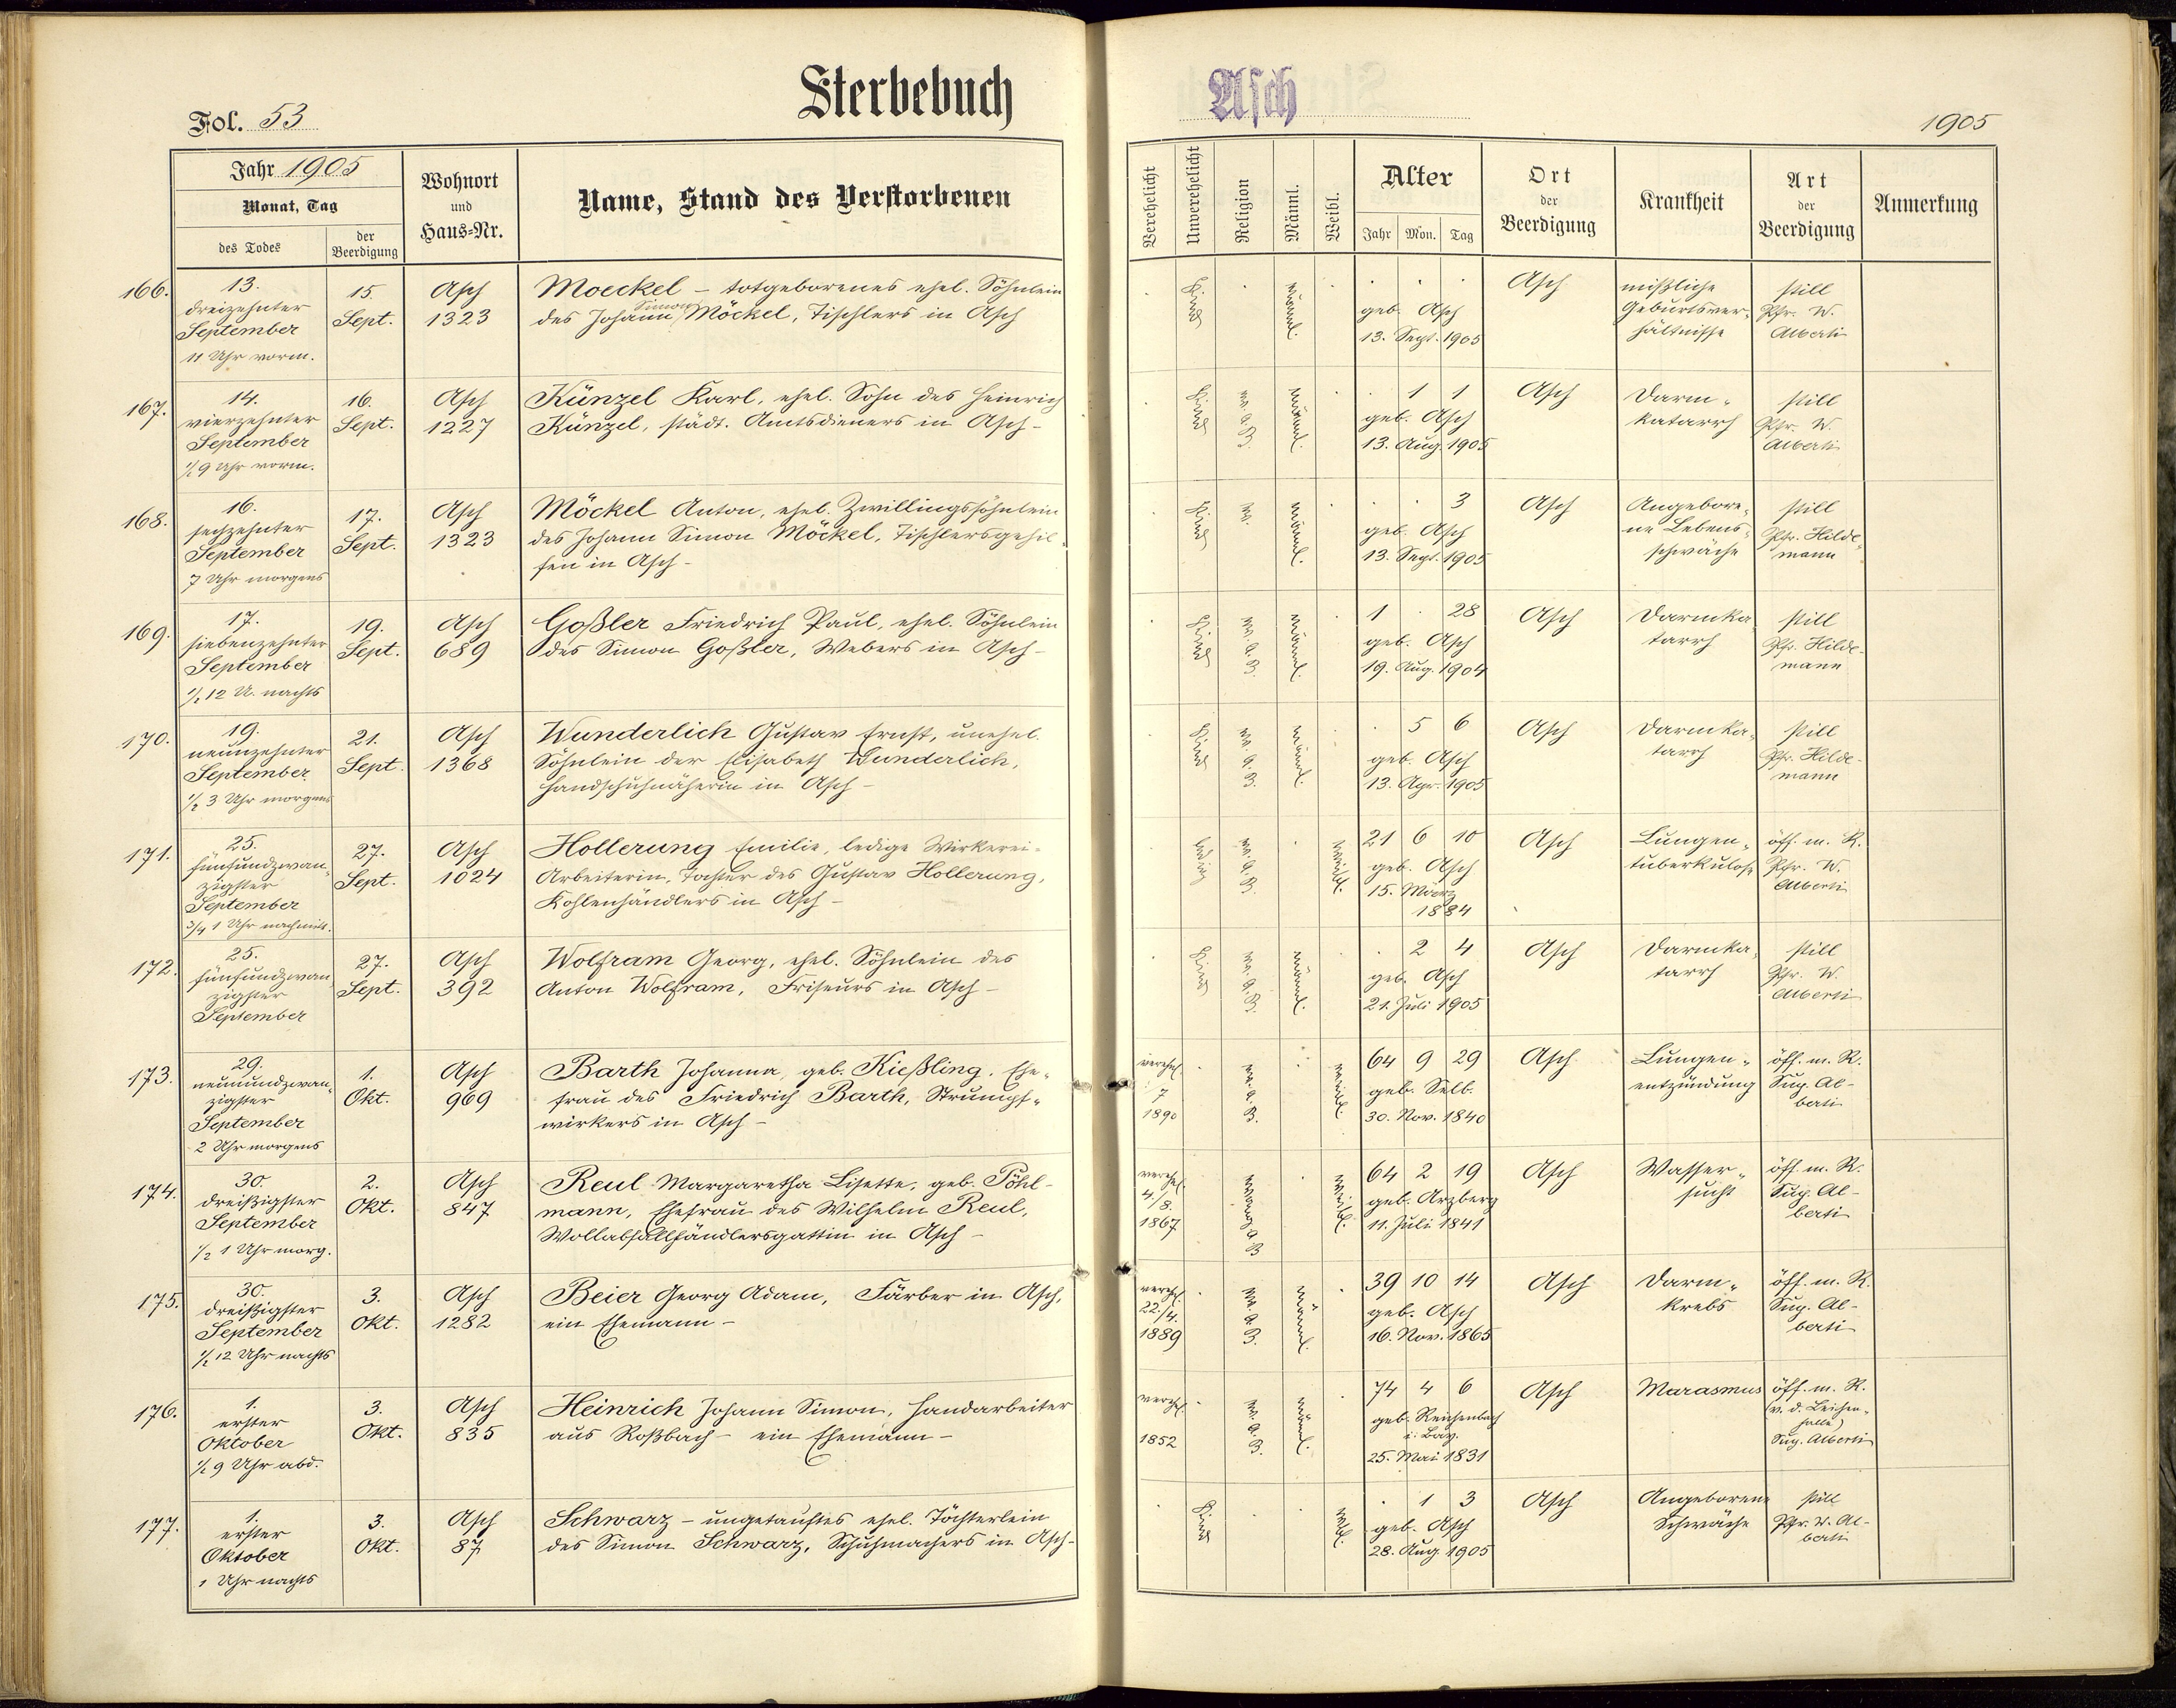 Sterbebuch
Asch
Fol. 53
1905
Jahr 1905
Monat, Tag
des Todes
der Beerdigung
Wohnort und Haus-Nr.
Name, Stand des Verstorbenen
Verehelicht
Unverehelicht
Religion
Männl.
Weibl.
Alter
Jahr
Mon.
Tag
Ort der Beerdigung
Krankheit
Art der Beerdigung
Anmerkung
166.
13.
dreizehnter
September
11 Uhr vorm.
15.
Sept.
Asch
1323
Moeckel – totgeborenes ehel. Söhnlein
des Johann Simon Möckel, Tischlers in Asch
Kind
männl.
geb. Asch
13. Sept. 1905
Asch
mißliche
Geburtsver-
hältnisse
still
Pfr. W.
Alberti
167.
14.
vierzehnter
September
1/2 9 Uhr vorm.
16.
Sept.
Asch
1227
Künzel Karl, ehel. Sohn des Heinrich
Künzel, städt. Amtsdieners in Asch –
Kind
ev. A. B.
männl.
1 1
geb. Asch
13. Aug. 1905
Asch
Darm-
katarrh
still
Pfr. W.
Alberti
168.
16.
sechzehnter
September
7 Uhr morgens
17.
Sept.
Asch
1323
Möckel Anton, ehel. Zwillingssöhnlein
des Johann Simon Möckel, Tischlersgehil-
fen in Asch –
Kind
ev.
männl.
3
geb. Asch
13. Sept. 1905
Asch
Angebore-
ne Lebens-
schwäche
still
Pfr. Hilde-
mann
169.
17.
siebenzehnter
September
1/2 12 U. nachts
19.
Sept.
Asch
689
Goßler Friedrich Paul, ehel. Söhnlein
des Simon Goßler, Webers in Asch –
Kind
ev. A. B.
männl.
1 28
geb. Asch
19. Aug. 1904
Asch
Darmka-
tarrh
still
Pfr. Hilde-
mann
170.
19.
neunzehnter
September
1/2 3 Uhr morgens
21.
Sept.
Asch
1368
Wunderlich Gustav Ernst, unehel.
Söhnlein der Elisabeth Wunderlich,
Handschuhnäherin in Asch –
Kind
ev. A. B.
männl.
5 6
geb. Asch
13. Apr. 1905
Asch
Darmka-
tarrh
still
Pfr. Hilde-
mann
171.
25.
fünfundzwan-
zigster
September
3/4 1 Uhr nachmitt.
27.
Sept.
Asch
1024
Hollerung Emilie, ledige Wirkerei-
Arbeiterin, Tochter des Gustav Hollerung,
Kohlenhändlers in Asch –
ledig
ev. A. B.
weibl.
21 6 10
geb. Asch
15. März
1884
Asch
Lungen-
tuberkulose
öff. m. R.
Pfr. W.
Alberti
172.
25.
fünfundzwan-
zigster
September
27.
Sept.
Asch
392
Wolfram Georg, ehel. Söhnlein des
Anton Wolfram, Friseurs in Asch –
Kind
ev. A. B.
männl.
2 4
geb. Asch
21. Juli 1905
Asch
Darmka-
tarrh
still
Pfr. W.
Alberti
173.
29.
neunundzwan-
zigster
September
2 Uhr morgens
1.
Okt.
Asch
969
Barth Johanna, geb. Kießling, Ehe-
frau des Friedrich Barth, Strumpf-
wirkers in Asch –
verehel.
7
1890
ev. A. B.
weibl.
64 9 29
geb. Selb.
30. Nov. 1840
Asch
Lungen-
entzündung
öff. m. R.
Sup. Al-
berti
174.
30.
dreißigster
September
1/2 1 Uhr morg.
2.
Okt.
Asch
847
Reul Margaretha Lisette, geb. Pöhl-
mann, Ehefrau des Wilhelm Reul,
Wollabfallhändlersgattin in Asch –
verehel.
4./8.
1867
evang. A. B.
weibl.
64 2 19
geb. Arzberg
11. Juli 1841
Asch
Wasser-
sucht
öff. m. R.
Sup. Al-
berti
175.
30.
dreißigster
September
1/2 12 Uhr nachts
3.
Okt.
Asch
1282
Beier Georg Adam, Färber in Asch,
ein Ehemann –
verehel.
22./4.
1889
ev. A. B.
männl.
39 10 14
geb. Asch
16. Nov. 1865
Asch
Darm-
krebs
öff. m. R.
Sup. Al-
berti
176.
1.
erster
Oktober
1/2 9 Uhr abd.
3.
Okt.
Asch
835
Heinrich Johann Simon, Handarbeiter
aus Roßbach – ein Ehemann –
verehel.
1852
ev. A. B.
männl.
74 4 6
geb. Reichenbach
i. Bay.
25. Mai 1831
Asch
Marasmus
öff. m. R.
(v. d. Leichen-
halle)
Sup. Alberti
177.
1.
erster
Oktober
1 Uhr nachts
3.
Okt.
Asch
87
Schwarz – ungetauftes ehel. Töchterlein
des Simon Schwarz, Schuhmachers in Asch –
Kind
weibl.
1 3
geb. Asch
28. Aug. 1905
Asch
Angeborene
Schwäche
still
Pfr. W. Al-
berti